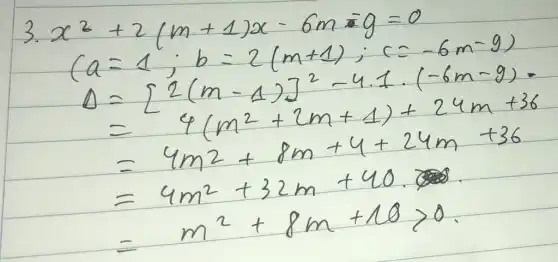 3. x² + 2(m + 1)x - 6m - 9 = 0
(a = 1 ; b = 2(m+1) ; c = -6m - 9)
Δ = [2(m - 1)]² - 4.1.(-6m - 9).
= 4(m² + 2m + 1) + 24m + 36
= 4m² + 8m + 4 + 24m + 36
= 4m² + 32m + 40.
= m² + 8m + 10 > 0.